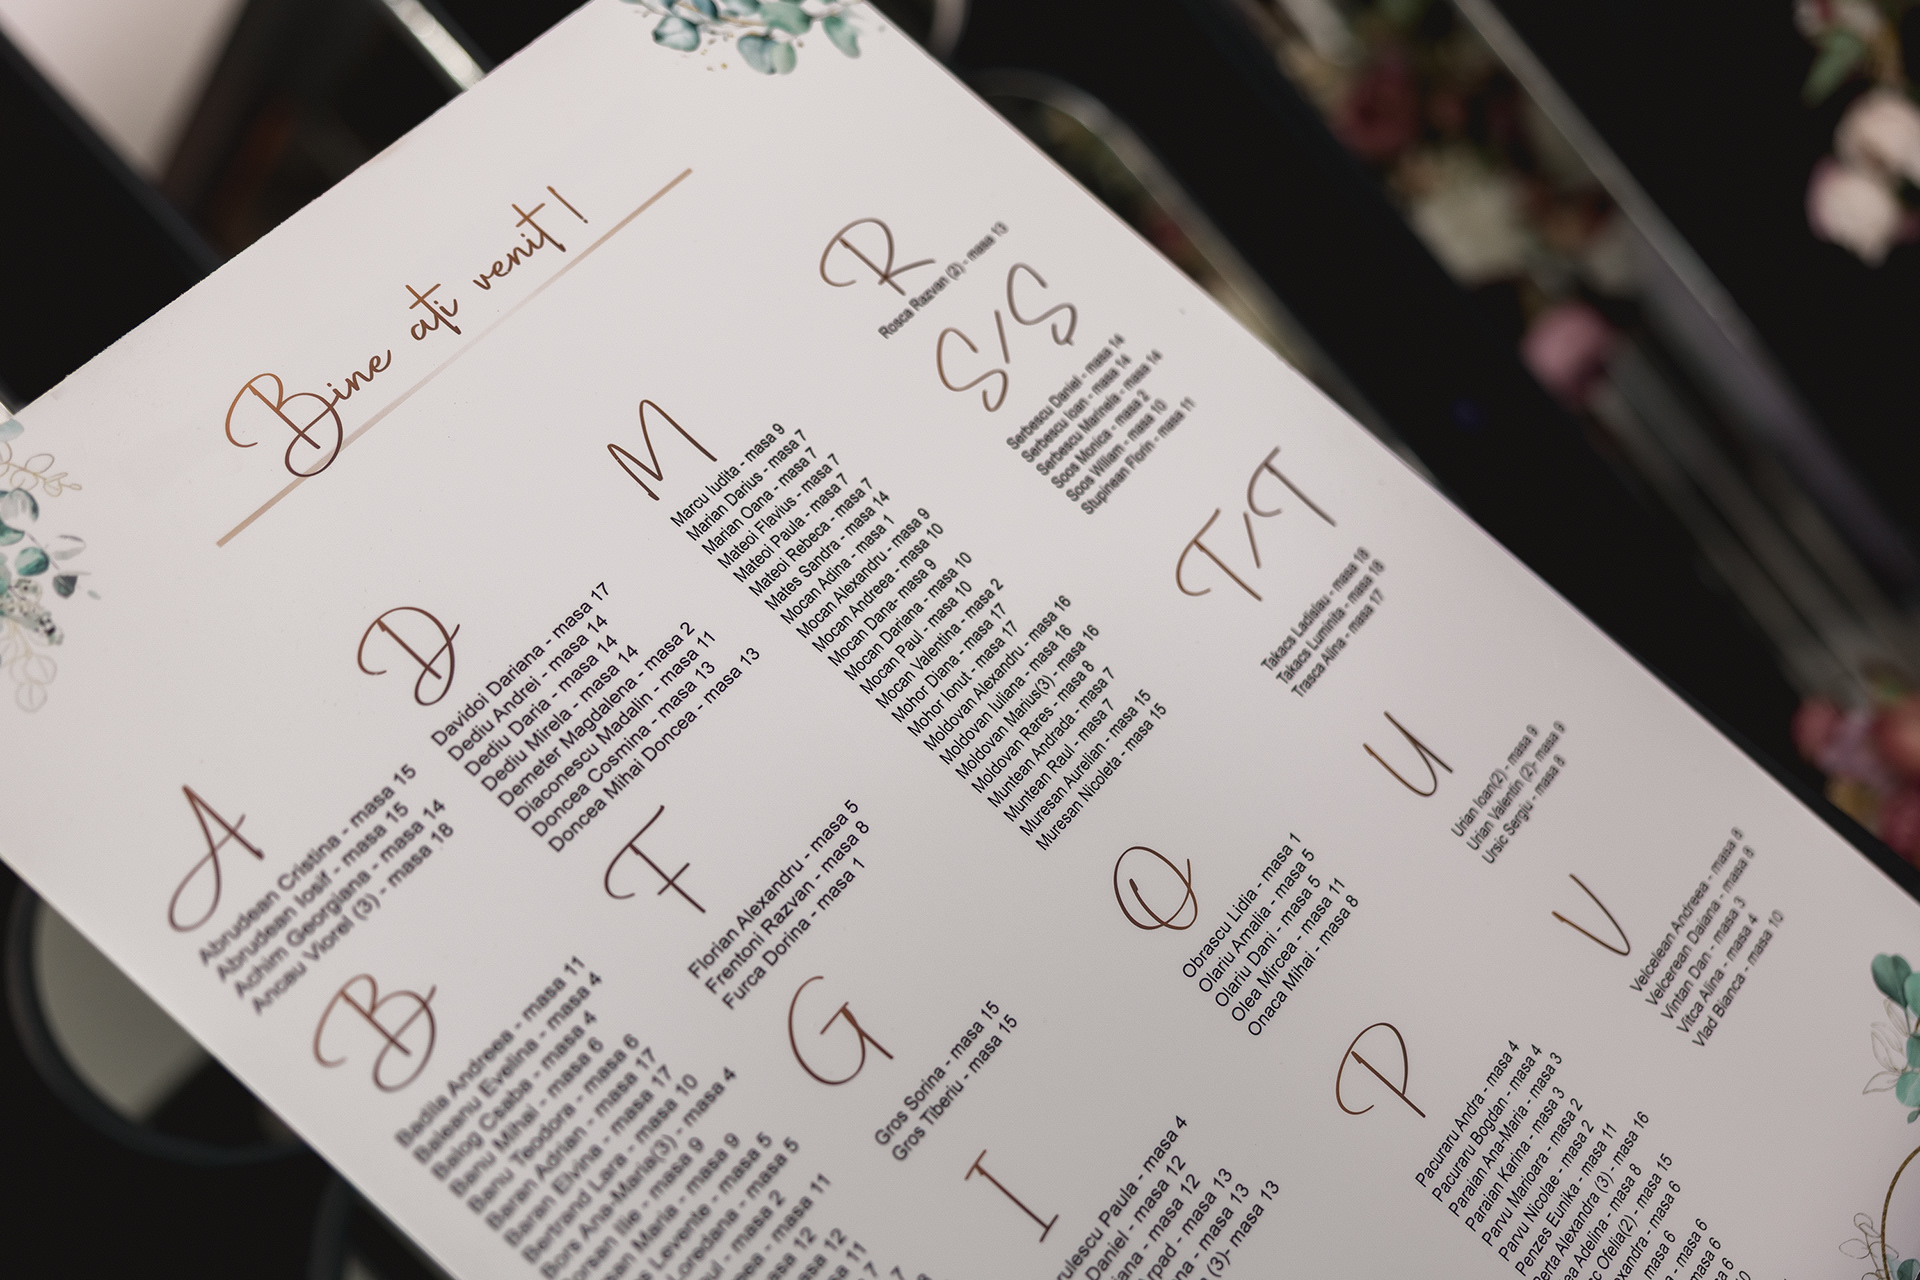 Bine ați venit !
A
Abrudean Cristina - masa 15
Abrudean Iosif - masa 15
Achim Georgiana - masa 14
Ancau Viorel (3) - masa 18
B
Badila Andreea - masa 11
Baleanu Evelina - masa 4
Balog Csaba - masa 4
Banu Mihai - masa 6
Banu Teodora - masa 6
Baran Adrian - masa 17
Baran Elvina - masa 17
Bertrand Lara - masa 10
Bors Ana-Maria(3) - masa 4
Ilie - masa 9
Maria - masa 9
Levente - masa 5
Loredana - masa 5
masa 2
masa 11
masa 12
12
11
D
Davidoi Dariana - masa 17
Dediu Andrei - masa 14
Dediu Daria - masa 14
Dediu Mirela - masa 14
Demeter Magdalena - masa 2
Diaconescu Madalin - masa 11
Doncea Cosmina - masa 13
Doncea Mihai Doncea - masa 13
F
Florian Alexandru - masa 5
Frentoni Razvan - masa 8
Furca Dorina - masa 1
G
Gros Sorina - masa 15
Gros Tiberiu - masa 15
I
Paula - masa 4
Daniel - masa 12
masa 12
masa 13
- masa 13
(3)- masa 13
M
Marcu Iudita - masa 9
Marian Darius - masa 7
Marian Oana - masa 7
Mateoi Flavius - masa 7
Mateoi Paula - masa 7
Mateoi Rebeca - masa 7
Mates Sandra - masa 14
Mocan Adina - masa 1
Mocan Alexandru - masa 9
Mocan Andreea - masa 10
Mocan Dana- masa 9
Mocan Dariana - masa 10
Mocan Paul - masa 10
Mocan Valentina - masa 2
Mohor Diana - masa 17
Mohor Ionut - masa 17
Moldovan Alexandru - masa 16
Moldovan Iuliana - masa 16
Moldovan Marius(3) - masa 16
Moldovan Rares - masa 8
Muntean Andrada - masa 7
Muntean Raul - masa 7
Muresan Aurelian - masa 15
Muresan Nicoleta - masa 15
O
Obrascu Lidia - masa 1
Olariu Amalia - masa 5
Olariu Dani - masa 5
Olea Mircea - masa 11
Onaca Mihai - masa 8
P
Pacuraru Andra - masa 4
Pacuraru Bogdan - masa 4
Paraian Ana-Maria - masa 3
Paraian Karina - masa 3
Parvu Marioara - masa 2
Parvu Nicolae - masa 2
Penzes Eunika - masa 11
Alexandra (3) - masa 16
Adelina - masa 8
Ofelia(2) - masa 15
masa 6
masa 6
masa 6
R
Rosca Razvan (2) - masa 13
S/Ș
Serbescu Daniel - masa 14
Serbescu Ioan - masa 14
Serbescu Marinela - masa 14
Soos Monica - masa 2
Soos Wiliam - masa 10
Stupinean Florin - masa 11
T/T
Takacs Ladislau - masa 18
Takacs Luminita - masa 18
Trasca Alina - masa 17
U
Urian Ioan(2) - masa 9
Urian Valentin (2)- masa 9
Ursic Sergiu - masa 8
V
Velcelean Andreea - masa 8
Velcerean Daiana - masa 8
Vintan Dan - masa 3
Vitca Alina - masa 4
Vlad Bianca - masa 10